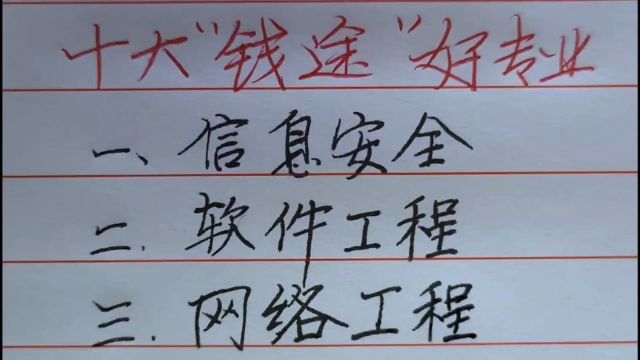 十大“钱途”好专业
一、信息安全
二.软件工程
三.网络工程